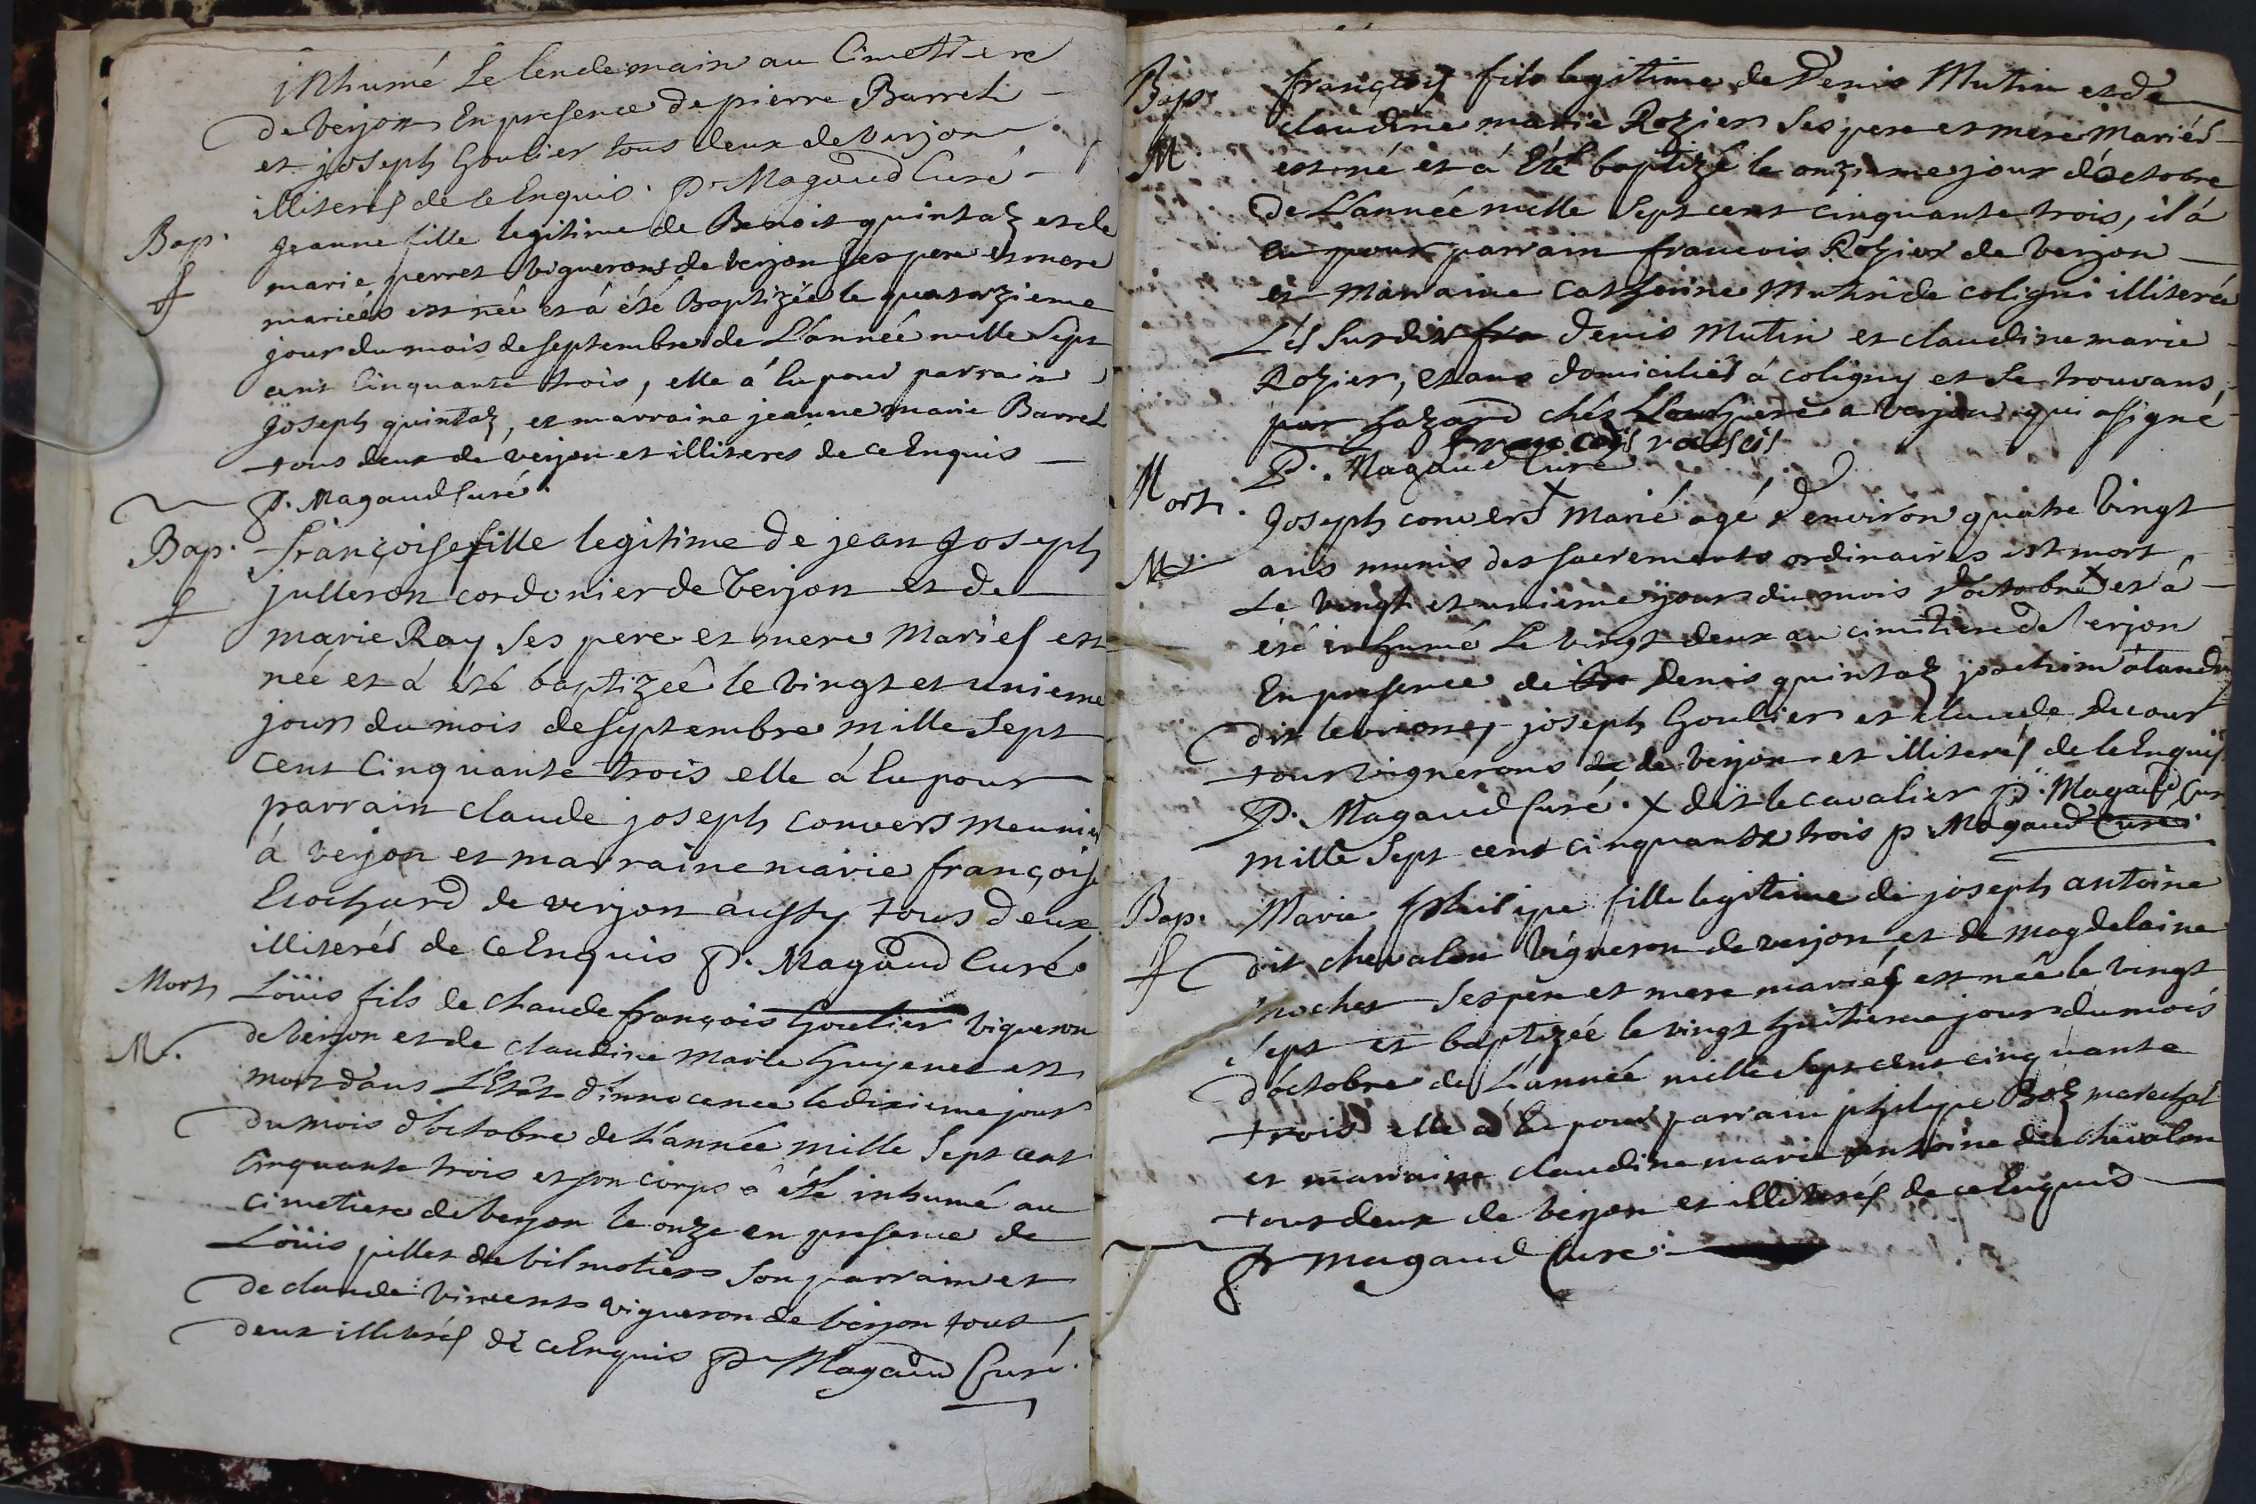 inhumé Le lendemain au Cimettiere
de verjon En presence de pierre Barret
et joseph Goulier tous deux de verjon
illiterés de ce Enquis. P. Magaud Curé
Bap. jeanne fille legitime de Benoit quintaz et de
f marie perret vignerons de verjon ses pere et mere
mariés est née et á été Baptizée le quatorzieme
jour du mois de septembre de L'année mille Sept
cent Cinquante trois, elle á Eu pour parrain
joseph quintaz, et marraine jeanne marie Barret
tous deux de verjon et illiteres de ce Enquis
P. Magaud Curé.
Bap. françoise fille legitime de jean joseph
f julleron cordonier de verjon et de
marie Ray Ses pere et mere Mariés est
née et á été baptizée le vingt et unieme
jour du mois de septembre mille Sept
cent Cinquante trois elle á Eu pour
parrain claude joseph convers meunier
á verjon et marraine marie françoise
Erochard de verjon aussy tous deux
illiterés de ce Enquis P. Magaud Curé.
Mort Loüis fils de claude françois Goulier vigneron
M. de verjon et de claudine Marie Guyenet est
mort dans L'Etat d'innocence le dixieme jour
du mois d'octobre de L'année mille Sept cent
Cinquante trois et son corps á été inhumé au
cimetiere de verjon le onze en presence de
Loüis pillet de vilmotiers Son parrain et
de claude vincent vigneron de verjon tous
deux illiterés de ce Enquis P. Magaud Curé.
Bap. françois fils legitime de Denis Mutin et de
M. claudine marie Rozier Ses pere et mere Mariés
est né et á Eté baptizé le onzieme jour d'octobre
de L'année mille Sept cent cinquante trois, il á
eu pour parrain francois Rozier de verjon
et marraine Catherine Mutin de coligni illiterée
Lés Susdits fra denis Mutin et claudine marie
Rozier, étans domiciliés á coligny et Se trouvans
par hazard chés a verjon qui a signé
francois
P. Magaud Curé
Mort. joseph convers X Marié agé d'environ quatre vingt
M. ans munis des sacrements ordinaires est mort
Le vingt et unieme jour du mois d'octobre X et á
été inhumé Le vingt deux au cimetiere de verjon
En presence de denis quintaz joachim
dit joseph Goulier et claude ducour
tous vignerons de de verjon et illiterés de ce Enquis
P. Magaud Curé. X dit le cavalier P. Magaud Cur
mille Sept cent cinquante trois P Magaud Curé.
Bap. Marie philipe fille legitime de joseph antoine
f dit chevalon vigneron de verjon et de magdelaine
nochet Ses pere et mere mariés est née le vingt
sept et baptizée le vingt huitieme jour du mois
d'octobre de L'année mille Sept cent cinquante
trois elle á Eu pour parrain philipe Boz marechal
et marraine claudine marie antoine dit chevalon
tous deux de verjon et illiterés de ce Enquis
Pr Magaud Curé.